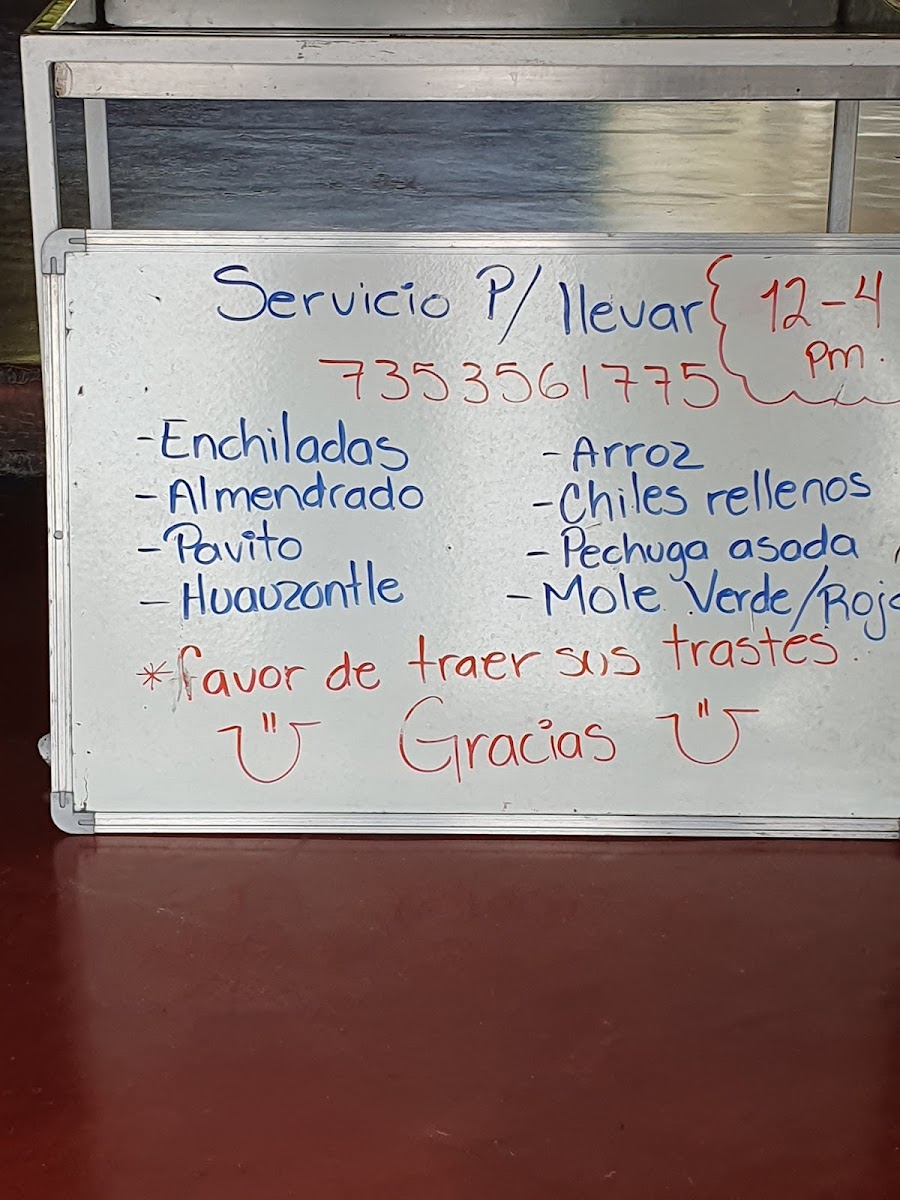 Servicio P/ llevar { 12-4 pm.
7353561775
-Enchiladas
-Almendrado
-Pavito
-Huauzontle
-Arroz
-Chiles rellenos
-Pechuga asada
-Mole Verde/Rojo
*favor de traer sus trastes.
Gracias